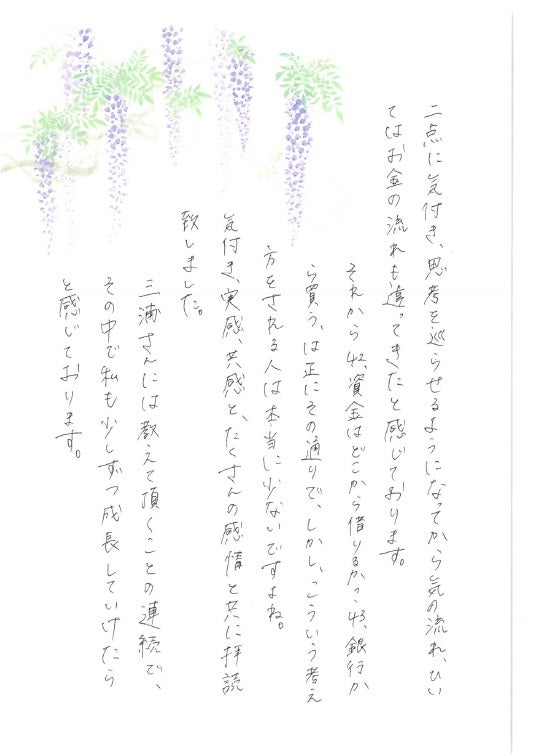 二点に気付き、思考を巡らせるようになってから気の流れ、ひい
てはお金の流れも違ってきたと感じております。
それから42、資金はどこから借りるか?43、銀行か
ら買う、は正にその通りで、しかし、こういう考え
方をされる人は本当に少ないですよね。
気付き、実感、共感と、たくさんの感情と共に拝読
致しました。
三浦さんには教えて頂くことの連続で、
その中で私も少しずつ成長していけたら
と感じております。